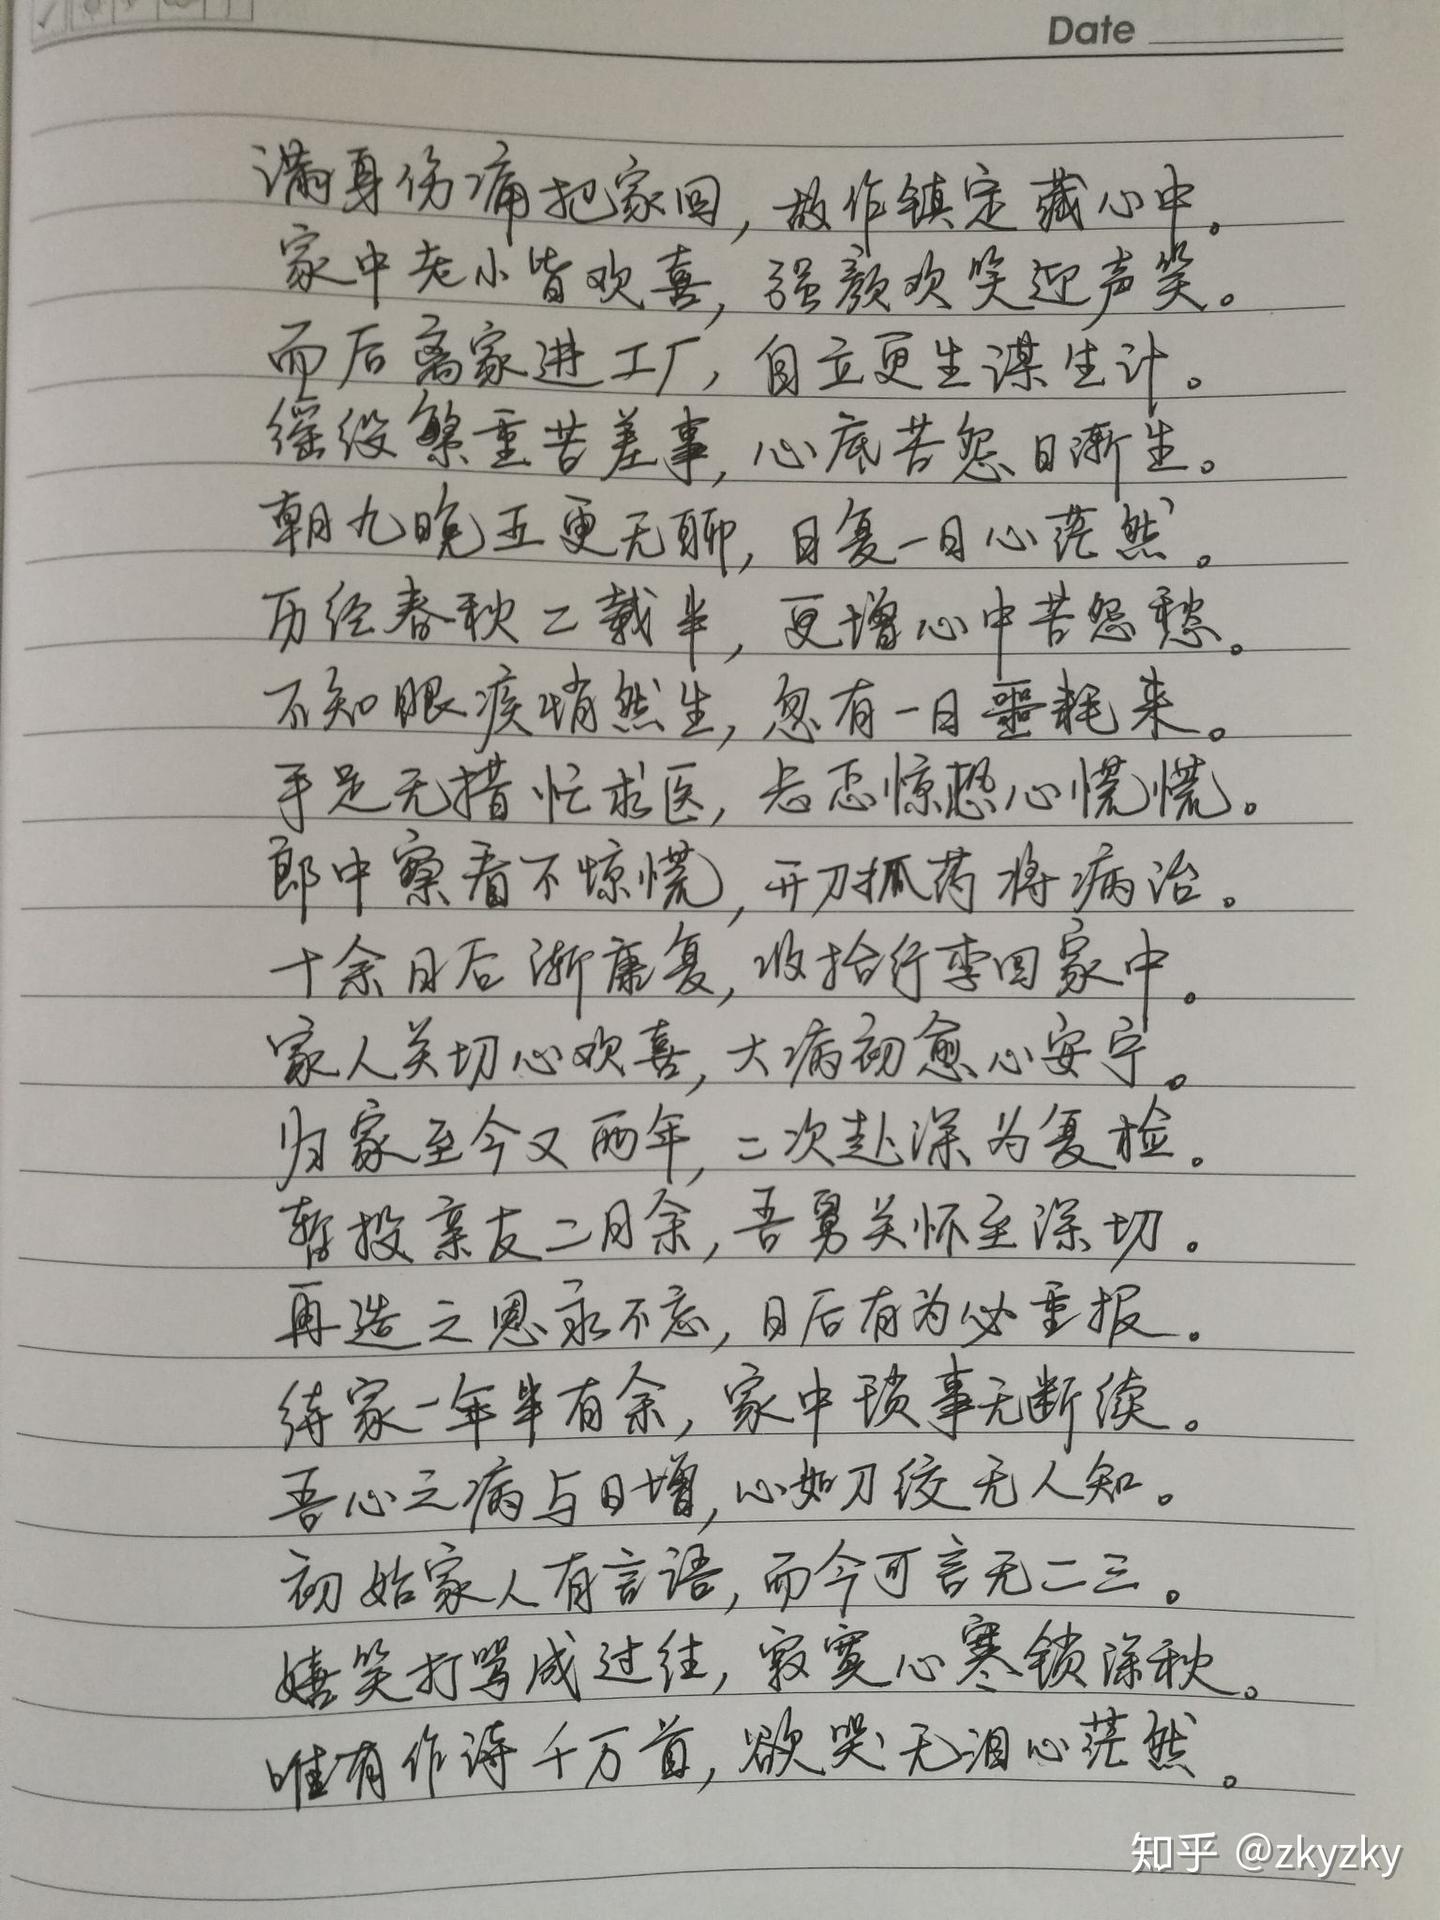 Date
满身伤痛把家回，故作镇定藏心中。
家中老小皆欢喜，强颜欢笑迎声笑。
而后离家进工厂，自立更生谋生计。
徭役繁重苦差事，心底苦怨日渐生。
朝九晚五更无聊，日复一日心茫然。
历经春秋二载半，更增心中苦怨愁。
不知眼疾悄然生，忽有一日噩耗来。
手足无措忙求医，忐忑惊恐心慌慌。
郎中察看不惊慌，开刀抓药将病治。
十余日后渐康复，收拾行李回家中。
家人关切心欢喜，大病初愈心安宁。
归家至今又两年，二次赴深为复检。
暂投亲友二月余，吾舅关怀至深切。
再造之恩永不忘，日后有为必重报。
待家一年半有余，家中琐事无断续。
吾心之病与日增，心如刀绞无人知。
初始家人有言语，而今可言无二三。
嬉笑打骂成过往，寂寞心寒锁深秋。
唯有作诗千万首，欲哭无泪心茫然。
知乎 @zkyzky